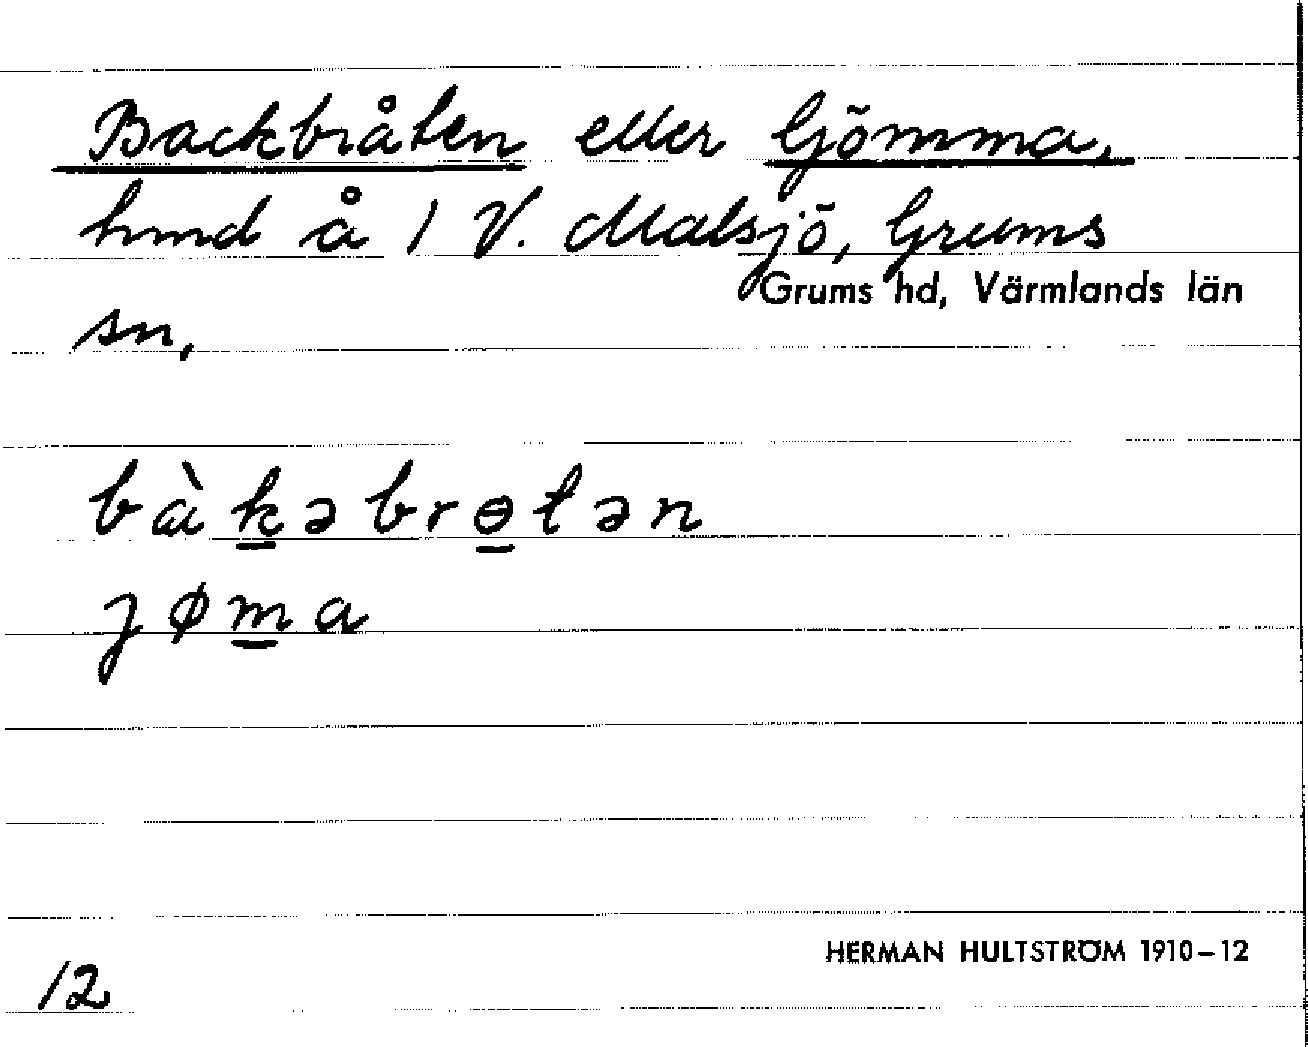 Backbråten eller Gjömma,
hmd å 1 V. Malsjö, Grums
Grums hd, Värmlands län
sn,
bàkəbrɵtən
jøma
HERMAN HULTSTRÖM 1910–12
12